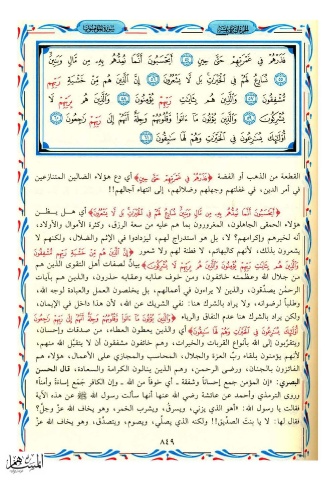 فَذَرْهُمْ فِي غَمْرَتِهِمْ حَتَّى حِينٍ ۝٥٤ أَيَحْسَبُونَ أَنَّمَا نُمِدُّهُمْ بِهِ مِنْ مَالٍ وَبَنِينَ
۝٥٥ نُسَارِعُ لَهُمْ فِي الْخَيْرَاتِ بَلْ لَا يَشْعُرُونَ ۝٥٦ إِنَّ الَّذِينَ هُمْ مِنْ خَشْيَةِ رَبِّهِمْ
مُشْفِقُونَ ۝٥٧ وَالَّذِينَ هُمْ بِآيَاتِ رَبِّهِمْ يُؤْمِنُونَ ۝٥٨ وَالَّذِينَ هُمْ بِرَبِّهِمْ لَا
يُشْرِكُونَ ۝٥٩ وَالَّذِينَ يُؤْتُونَ مَا آتَوْا وَقُلُوبُهُمْ وَجِلَةٌ أَنَّهُمْ إِلَى رَبِّهِمْ رَاجِعُونَ ۝٦٠
أُولَئِكَ يُسَارِعُونَ فِي الْخَيْرَاتِ وَهُمْ لَهَا سَابِقُونَ ۝٦١
القطعة من الذهب أو الفضة ﴿فَذَرْهُمْ فِي غَمْرَتِهِمْ حَتَّى حِينٍ﴾ أي دع هؤلاء الضالين المتنازعين
في أمر الدين، في غفلتهم وجهلهم وضلالهم، إلى انتهاء آجالهم!!
﴿أَيَحْسَبُونَ أَنَّمَا نُمِدُّهُمْ بِهِ مِنْ مَالٍ وَبَنِينَ نُسَارِعُ لَهُمْ فِي الْخَيْرَاتِ بَلْ لَا يَشْعُرُونَ﴾ أي هل يظن
هؤلاء الحمقى الجاهلون، المغرورون بما هم عليه من سعة الرزق، وكثرة الأموال والأولاد،
أنه لخيرهم وإكرامهم؟ لا، بل هو استدراج لهم، ليزدادوا في الإثم والضلال، ولكنهم لا
يشعرون بذلك، لأنهم كالبهائم، لا فطنة لهم ولا شعور ﴿إِنَّ الَّذِينَ هُمْ مِنْ خَشْيَةِ رَبِّهِمْ مُشْفِقُونَ
وَالَّذِينَ هُمْ بِآيَاتِ رَبِّهِمْ يُؤْمِنُونَ وَالَّذِينَ هُمْ بِرَبِّهِمْ لَا يُشْرِكُونَ﴾ بيان لصفات أهل التقوى الذين هم
من جلال الله وعظمته خائفون، ومن خوف عذابه وعقابه حذرون، والذين هم بآيات
الرحمن يصدّقون، والذين لا يراءون في أعمالهم، بل يخلصون العمل والعبادة لوجه الله،
وطلباً لرضوانه، ولا يراد بالشرك هنا: نفي الشريك عن الله، لأن هذا داخل في الإيمان،
ولكن يراد بالشرك هنا عدم النفاق والرياء ﴿وَالَّذِينَ يُؤْتُونَ مَا آتَوْا وَقُلُوبُهُمْ وَجِلَةٌ أَنَّهُمْ إِلَى رَبِّهِمْ رَاجِعُونَ
أُولَئِكَ يُسَارِعُونَ فِي الْخَيْرَاتِ وَهُمْ لَهَا سَابِقُونَ﴾ أي والذين يعطون العطاء، من صدقات وإحسان،
ويتقرّبون إلى الله بأنواع القربات والخيرات، وهم خائفون مشفقون أن لا يتقبّل الله منهم،
لأنهم يؤمنون بلقاء ربّ العزة والجلال، المحاسب والمجازي على الأعمال، هؤلاء هم
الفائزون بالجنان، ورضى الرحمن، وهم الذين ينالون الكرامة والسعادة، قال الحسن
البصري: «إن المؤمن جمع إحساناً وشفقة - أي خوفاً من الله - وإن الكافر جمع إساءة وأمناً»
وروى الترمذي وأحمد عن عائشة رضي الله عنها أنها سألت رسول الله ﷺ عن هذه الآية
فقالت يا رسول الله: «أهو الذي يزني، ويسرق، ويشرب الخمر، وهو يخاف الله عزّ وجلّ؟
فقال لها: لا يا بنت الصدّيق!! ولكنه الذي يصلّي، ويصوم، ويتصدّق، وهو يخاف الله عزّ
٨٤٩